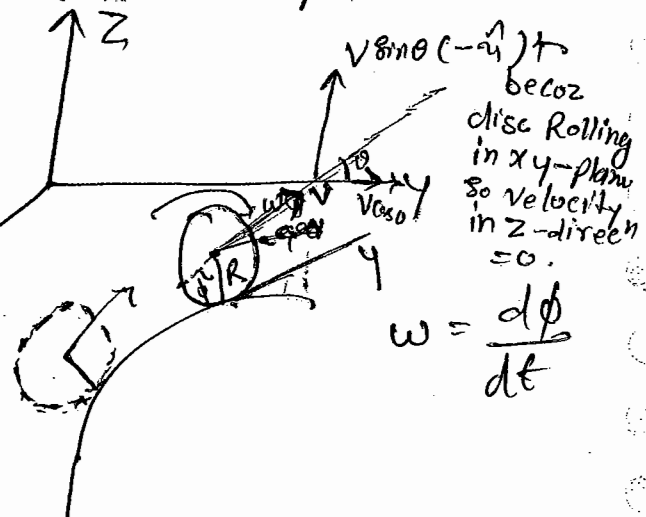 Z
V sinθ (-x̂) ↑
becoz
disc Rolling
in xy-plane
so velocity
in z-direcⁿ
=0.
θ
V
y
Vcosθ
R
φ
y
ω = dφ/dt